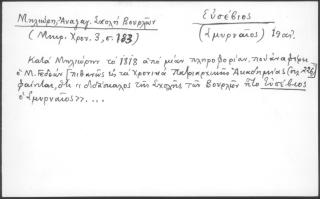 Μηλιώρη, Αναλαγ. Σχολή Βουρλών
(Μικρ. Χρον. 3, σ. 183)
Εὐσέβιος
(Σμυρναῖος) 19 αι.
Κατὰ Μηλιώρην τὸ 1818 ἀπὸ μίαν πληροφορίαν, ποὺ ἀναφέρει
ὁ Μ. Γεδεὼν [πιθανῶς εἰς τὰ Χρονικὰ Πατριαρχικῆς Ἀκαδημίας (σελ. 226)]
φαίνεται, ὅτι "διδάσκαλος τῆς Σχολῆς τῶν Βουρλῶν ἦτο Εὐσέβιος
ὁ Σμυρναῖος>>....